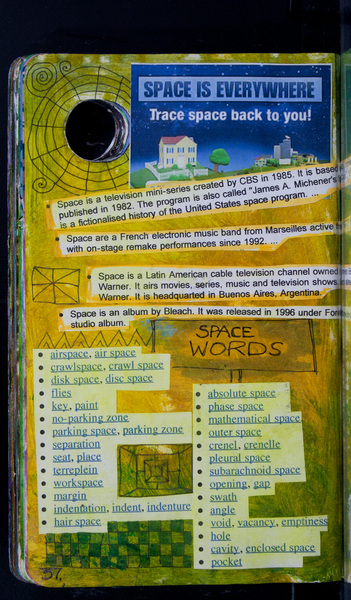 SPACE IS EVERYWHERE
Trace space back to you!
Space is a television mini-series created by CBS in 1985. It is based
published in 1982. The program is also called "James A. Michener's
is a fictionalised history of the United States space program. ...
Space are a French electronic music band from Marseilles active
with on-stage remake performances since 1992. ...
Space is a Latin American cable television channel owned
Warner. It airs movies, series, music and television shows
Warner. It is headquarted in Buenos Aires, Argentina.
Space is an album by Bleach. It was released in 1996 under
studio album.
SPACE
WORDS
airspace, air space
crawlspace, crawl space
disk space, disc space
flies
key, paint
no-parking zone
parking space, parking zone
separation
seat, place
terreplein
workspace
margin
indenation, indent, indenture
hair space
absolute space
phase space
mathematical space
outer space
crenel, crenelle
pleural space
subarachnoid space
opening, gap
swath
angle
void, vacancy, emptiness
hole
cavity, enclosed space
pocket
37,